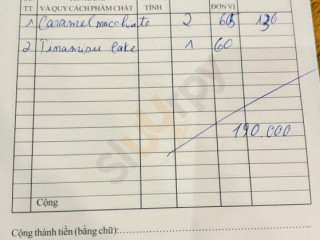 TT VÀ QUY CÁCH PHẨM CHẤT TÍNH ĐƠN VỊ
1 Caramel macchiato 2 65 130
2 Tiramisu cake 1 60
190.000
Cộng
Cộng thành tiền (bằng chữ):